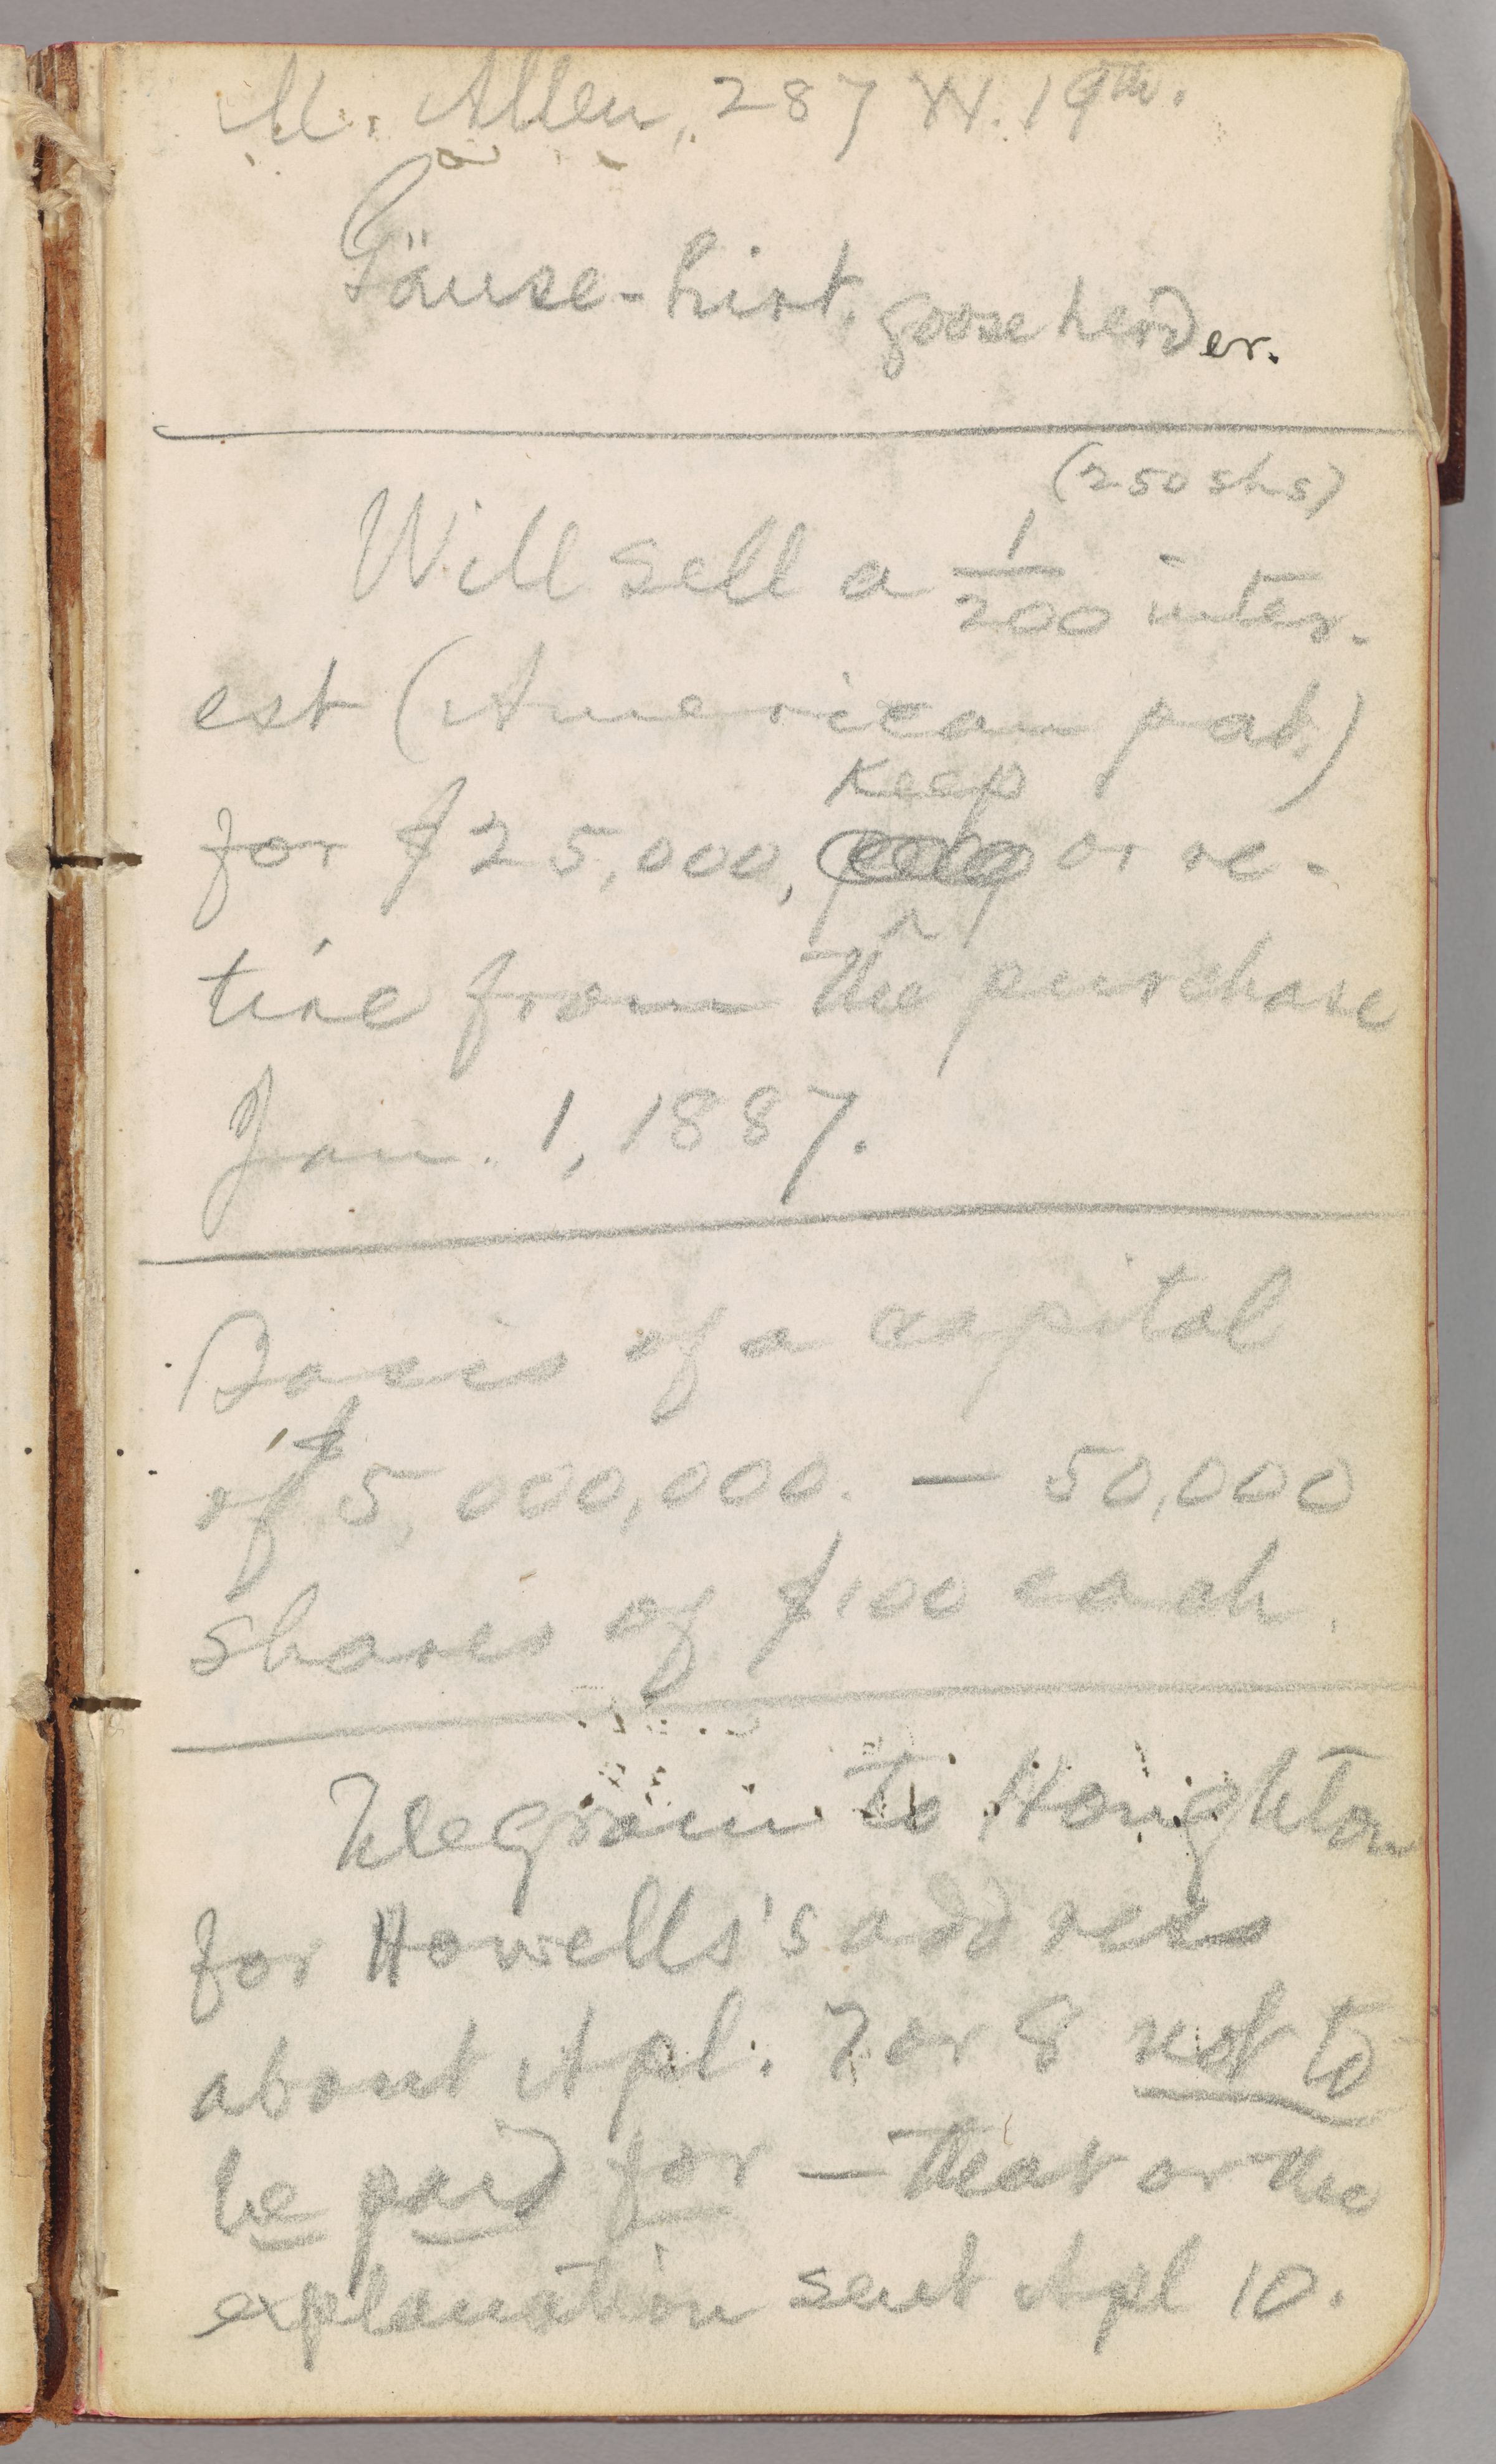 M. Allen, 287 W. 19th.
Gänse-hirt, gooseherder.
(250 shs)
Will sell a 1/200 inter-
est (American pat.)
keep
for $25,000, or re-
tire from the purchase
Jan. 1, 1887.
Basis of a capital
of $5,000,000. — 50,000
shares of $100 each.
Telegram to Houghton
for Howells's address
about Apl. 7 or 8 not to
be paid for — that or the
explanation sent Apl 10.